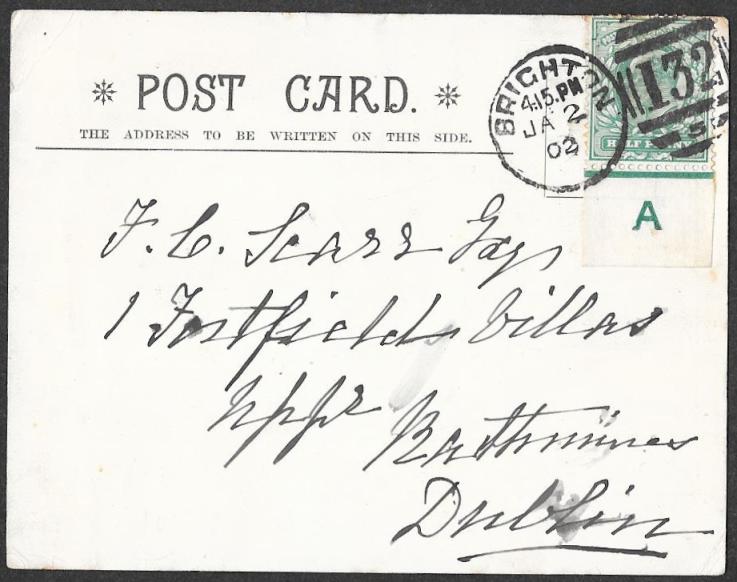 POST CARD.
THE ADDRESS TO BE WRITTEN ON THIS SIDE.
BRIGHTON
4.15.PM
JA 2
02
132
HALF PENNY
A
F. C. Scarr Esq
1 Fortfields Villas
Uppr Rathmines
Dublin